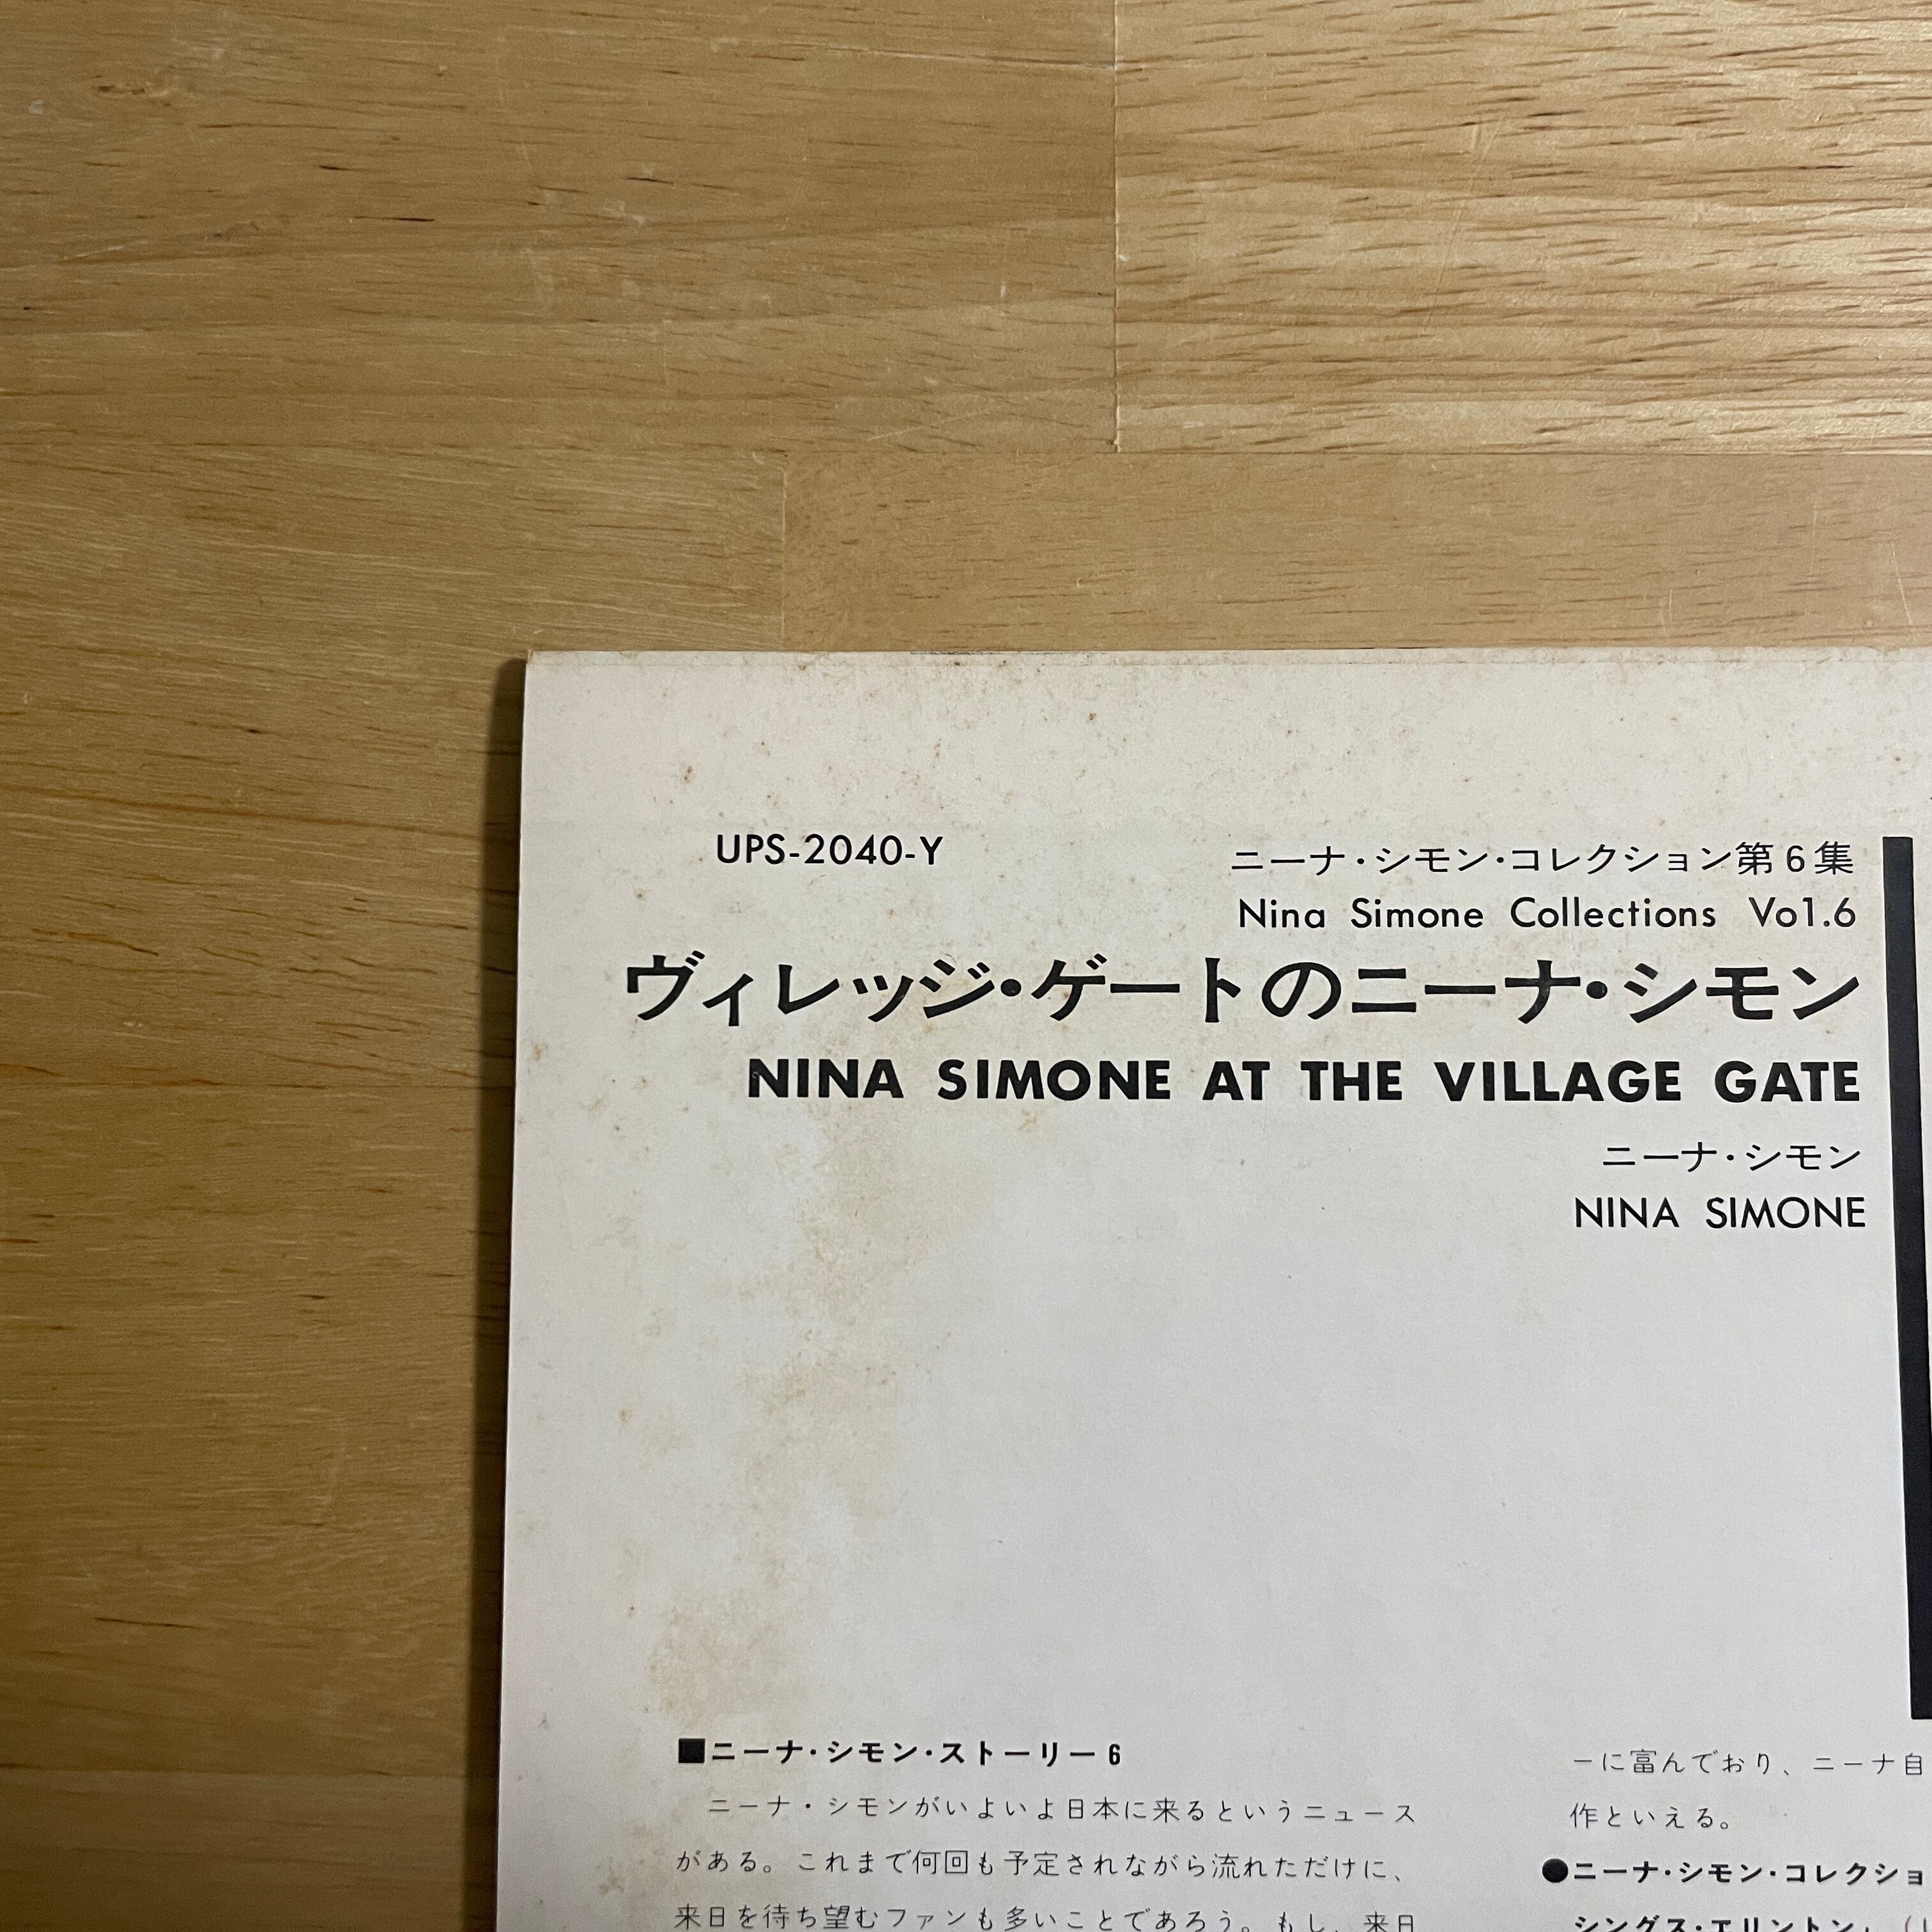 UPS-2040-Y
ニーナ・シモン・コレクション第6集
Nina Simone Collections Vol.6
ヴィレッジ・ゲートのニーナ・シモン
NINA SIMONE AT THE VILLAGE GATE
ニーナ・シモン
NINA SIMONE
■ニーナ・シモン・ストーリー6
ニーナ・シモンがいよいよ日本に来るというニュース
がある。これまで何回も予定されながら流れただけに、
来日を待ち望むファンも多いことであろう。もし、来日
ーに富んでおり、ニーナ自
作といえる。
●ニーナ・シモン・コレクショ
シングス・エリントン」